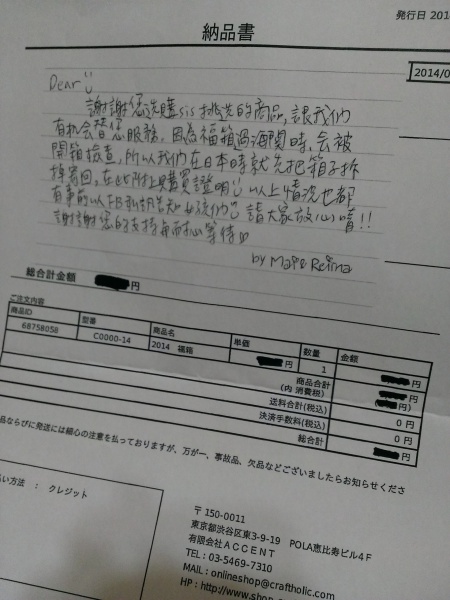 発行日 201
納品書
2014/0
Dear
謝謝您洗購sis挑洗的商品,讓我們
有机会替您服務,因為福箱過海関時,会被
開箱檢查,所以我們在日本時就先把箱子拆
掉寄回,在此附上購買證明 以上情況也都
有事前以FB私訊告知女孩們 請大家放心唷!!
謝謝您的支持与耐心等待
by Mai & Reina
総合計金額 円
ご注文内容
商品ID 型番 商品名 単価 数量 金額
68758058 C0000-14 2014 福箱 円 1 円
商品合計 円
(内 消費税) ( 円)
送料合計(税込) 0 円
決済手数料(税込) 0 円
総合計 円
品ならびに発送には細心の注意を払っておりますが、万が一、事故品、欠品などございましたらお知らせくださ
払い方法 : クレジット
〒150-0011
東京都渋谷区東3-9-19 POLA恵比寿ビル4F
有限会社ACCENT
TEL : 03-5469-7310
MAIL : onlineshop@craftholic.com
HP : http://www.shop